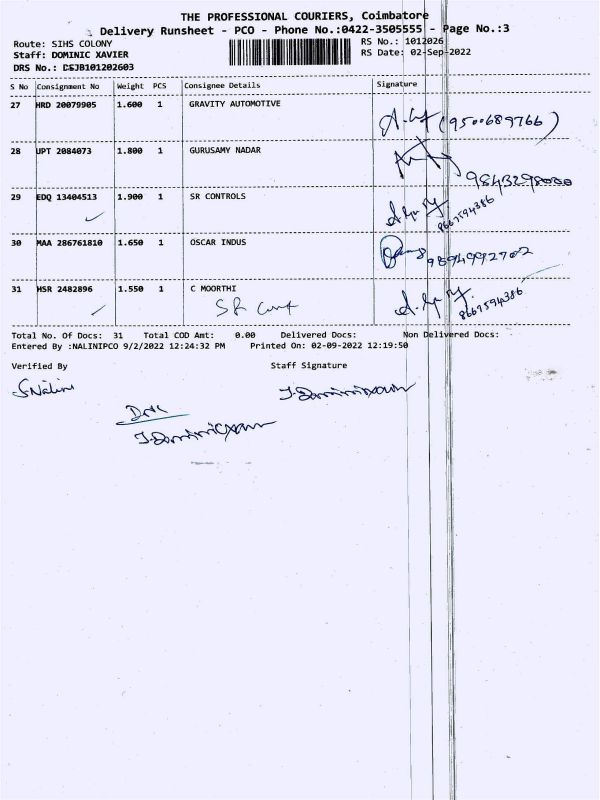 THE PROFESSIONAL COURIERS, Coimbatore
Delivery Runsheet - PCO - Phone No.:0422-3505555 - Page No.:3
Route: SIHS COLONY
RS No.: 1012026
Staff: DOMINIC XAVIER
RS Date: 02-Sep-2022
DRS No.: DSJB101202603
S No Consignment No Weight PCS Consignee Details Signature
27 HRD 20079905 1.600 1 GRAVITY AUTOMOTIVE
(9500689766)
28 UPT 2084073 1.800 1 GURUSAMY NADAR
29 EDQ 13404513 1.900 1 SR CONTROLS
8667594386
30 MAA 286761810 1.650 1 OSCAR INDUS
9894992702
31 HSR 2482896 1.550 1 C MOORTHI
SR Cont
8667594386
Total No. Of Docs: 31 Total COD Amt: 0.00 Delivered Docs: Non Delivered Docs:
Entered By :NALINIPCO 9/2/2022 12:24:32 PM Printed On: 02-09-2022 12:19:50
Verified By Staff Signature
S.Nalini